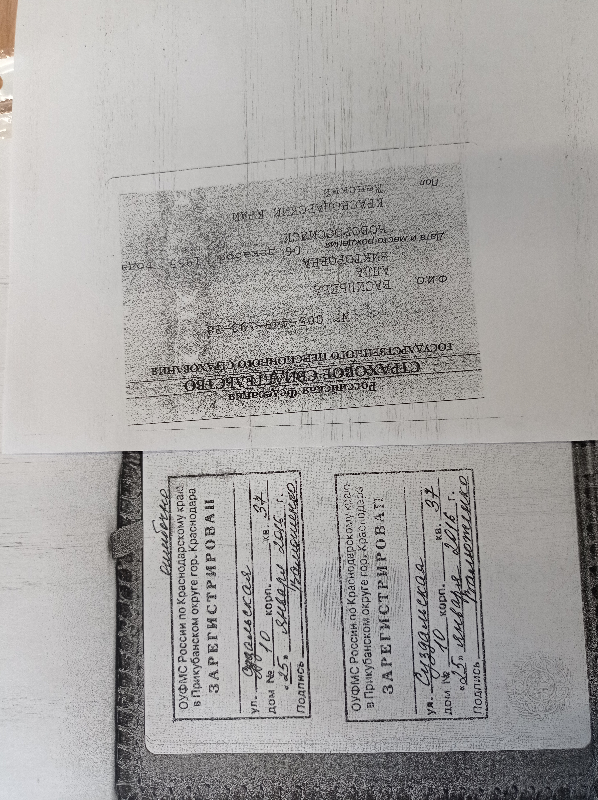 Российская Федерация
СТРАХОВОЕ СВИДЕТЕЛЬСТВО
ГОСУДАРСТВЕННОГО ПЕНСИОННОГО СТРАХОВАНИЯ
№
Ф.И.О.
ВАСИЛЬЕВА
АЛЛА
ВИКТОРОВНА
Дата и место рождения 06 декабря года
НОВОРОССИЙСК
КРАСНОДАРСКИЙ КРАЙ
Пол женский
ошибочно
ОУФМС России по Краснодарскому краю
в Прикубанском округе гор. Краснодара
ЗАРЕГИСТРИРОВАН
ул. Суздальская
дом № 10 корп. кв. 37
"25" января 2016 г.
Подпись
ОУФМС России по Краснодарскому краю
в Прикубанском округе гор. Краснодара
ЗАРЕГИСТРИРОВАН
ул. Суздальская
дом № 10 корп. кв. 37
"25" января 2016 г.
Подпись